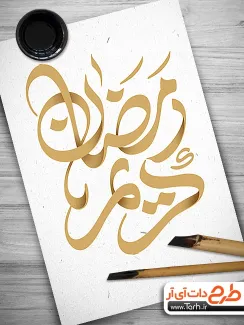 رمضان
كريم
طرح دات آی آر
www.Tarh.ir